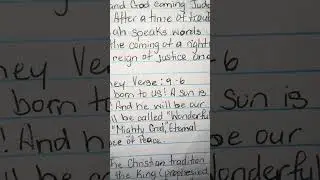 and God coming Jud
After a time of troub
ah speaks words
the coming of a right
reign of justice and
ey Verse: 9-6
born to us! A son is
! And he will be our
ll be called "Wonderful
"Mighty God," Eternal
ce of Peace.
the Christian tradition
the King (prophesied